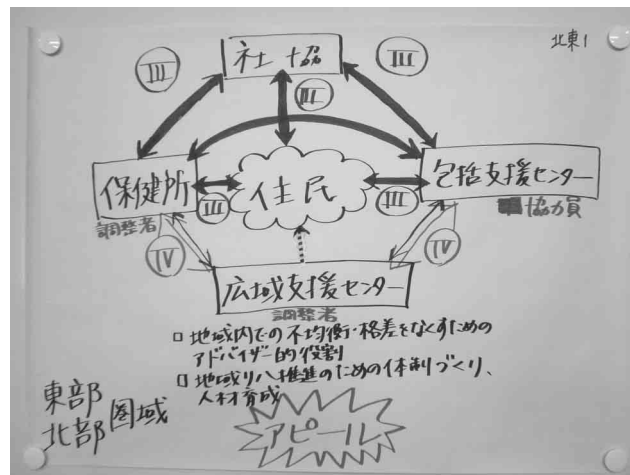 北東1
社協
III
III
III
保健所
調整者
III
住民
III
包括支援センター
協力員
IV
IV
広域支援センター
調整者
□ 地域内での不均衡・格差をなくすための
アドバイザー的役割
□ 地域リハ推進のための体制づくり、
人材育成
東部
北部
圏域
アピール